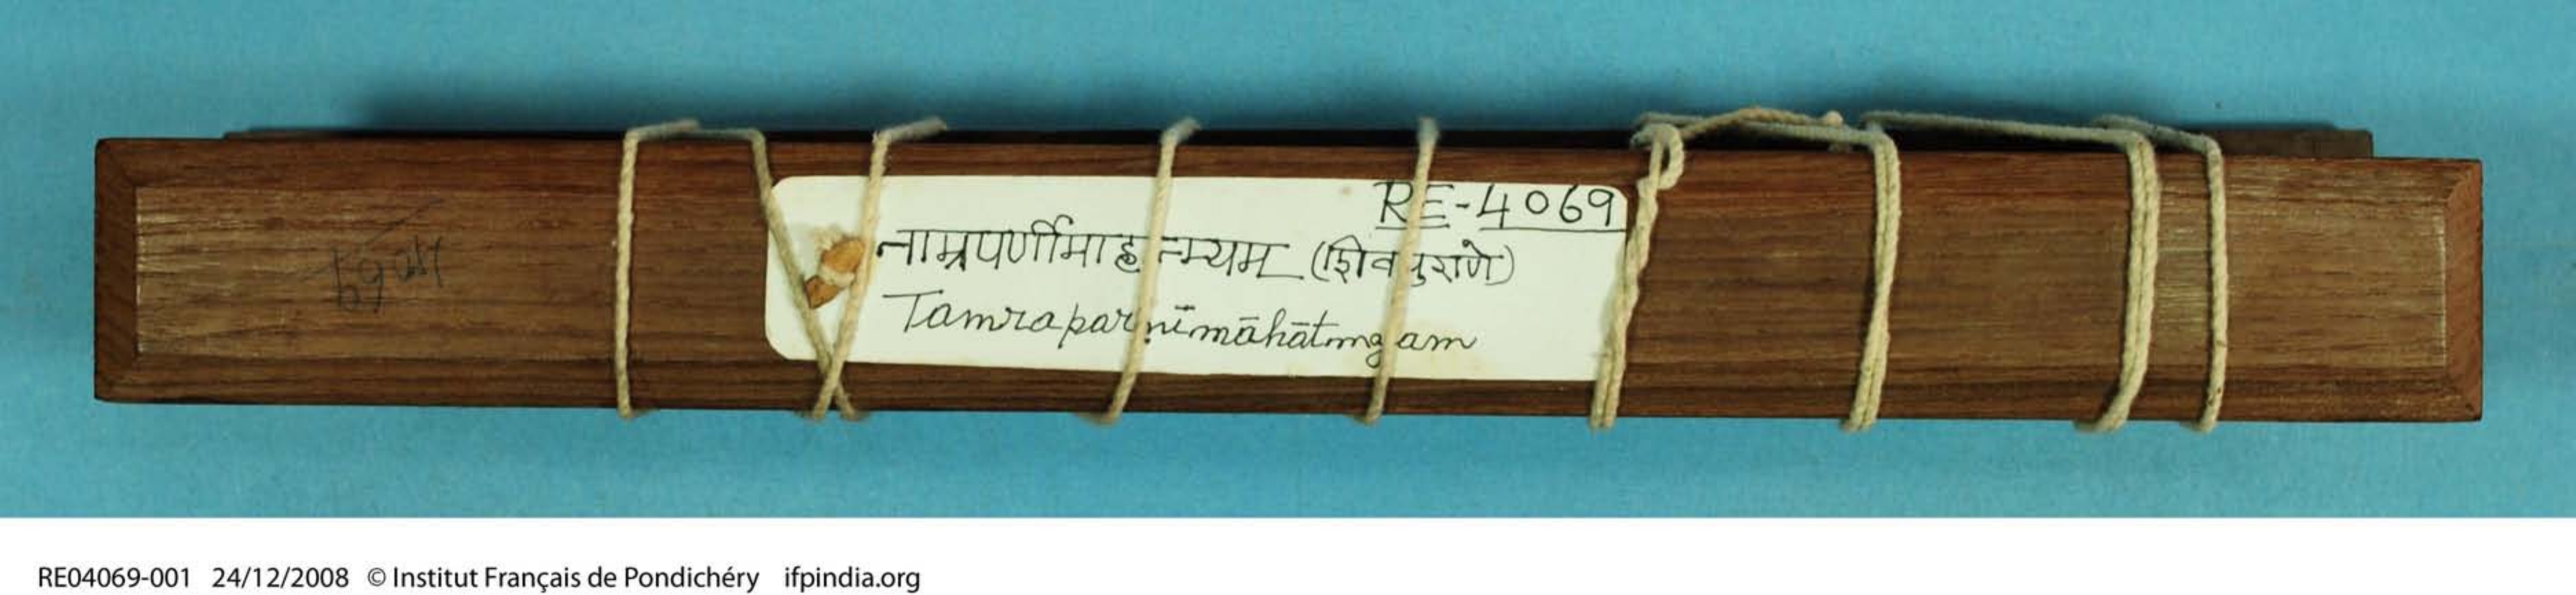 4069
RE-4069
ताम्रपर्णीमाहात्म्यम (शिवपुराणे)
Tamraparṇīmāhātmyam
RE04069-001 24/12/2008 © Institut Français de Pondichéry ifpindia.org